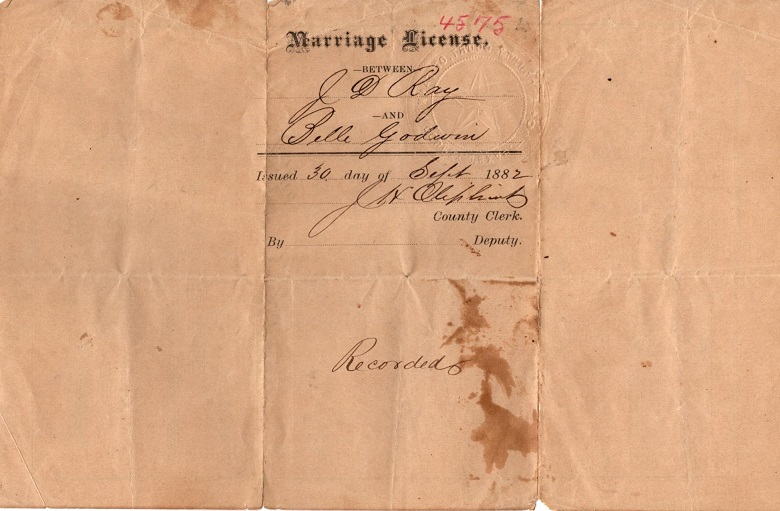 4575
Marriage License.
—BETWEEN—
J D Ray
—AND
Belle Godwin
Issued 30 day of Sept 1882
J H Oliphint
County Clerk.
By Deputy.
Recorded